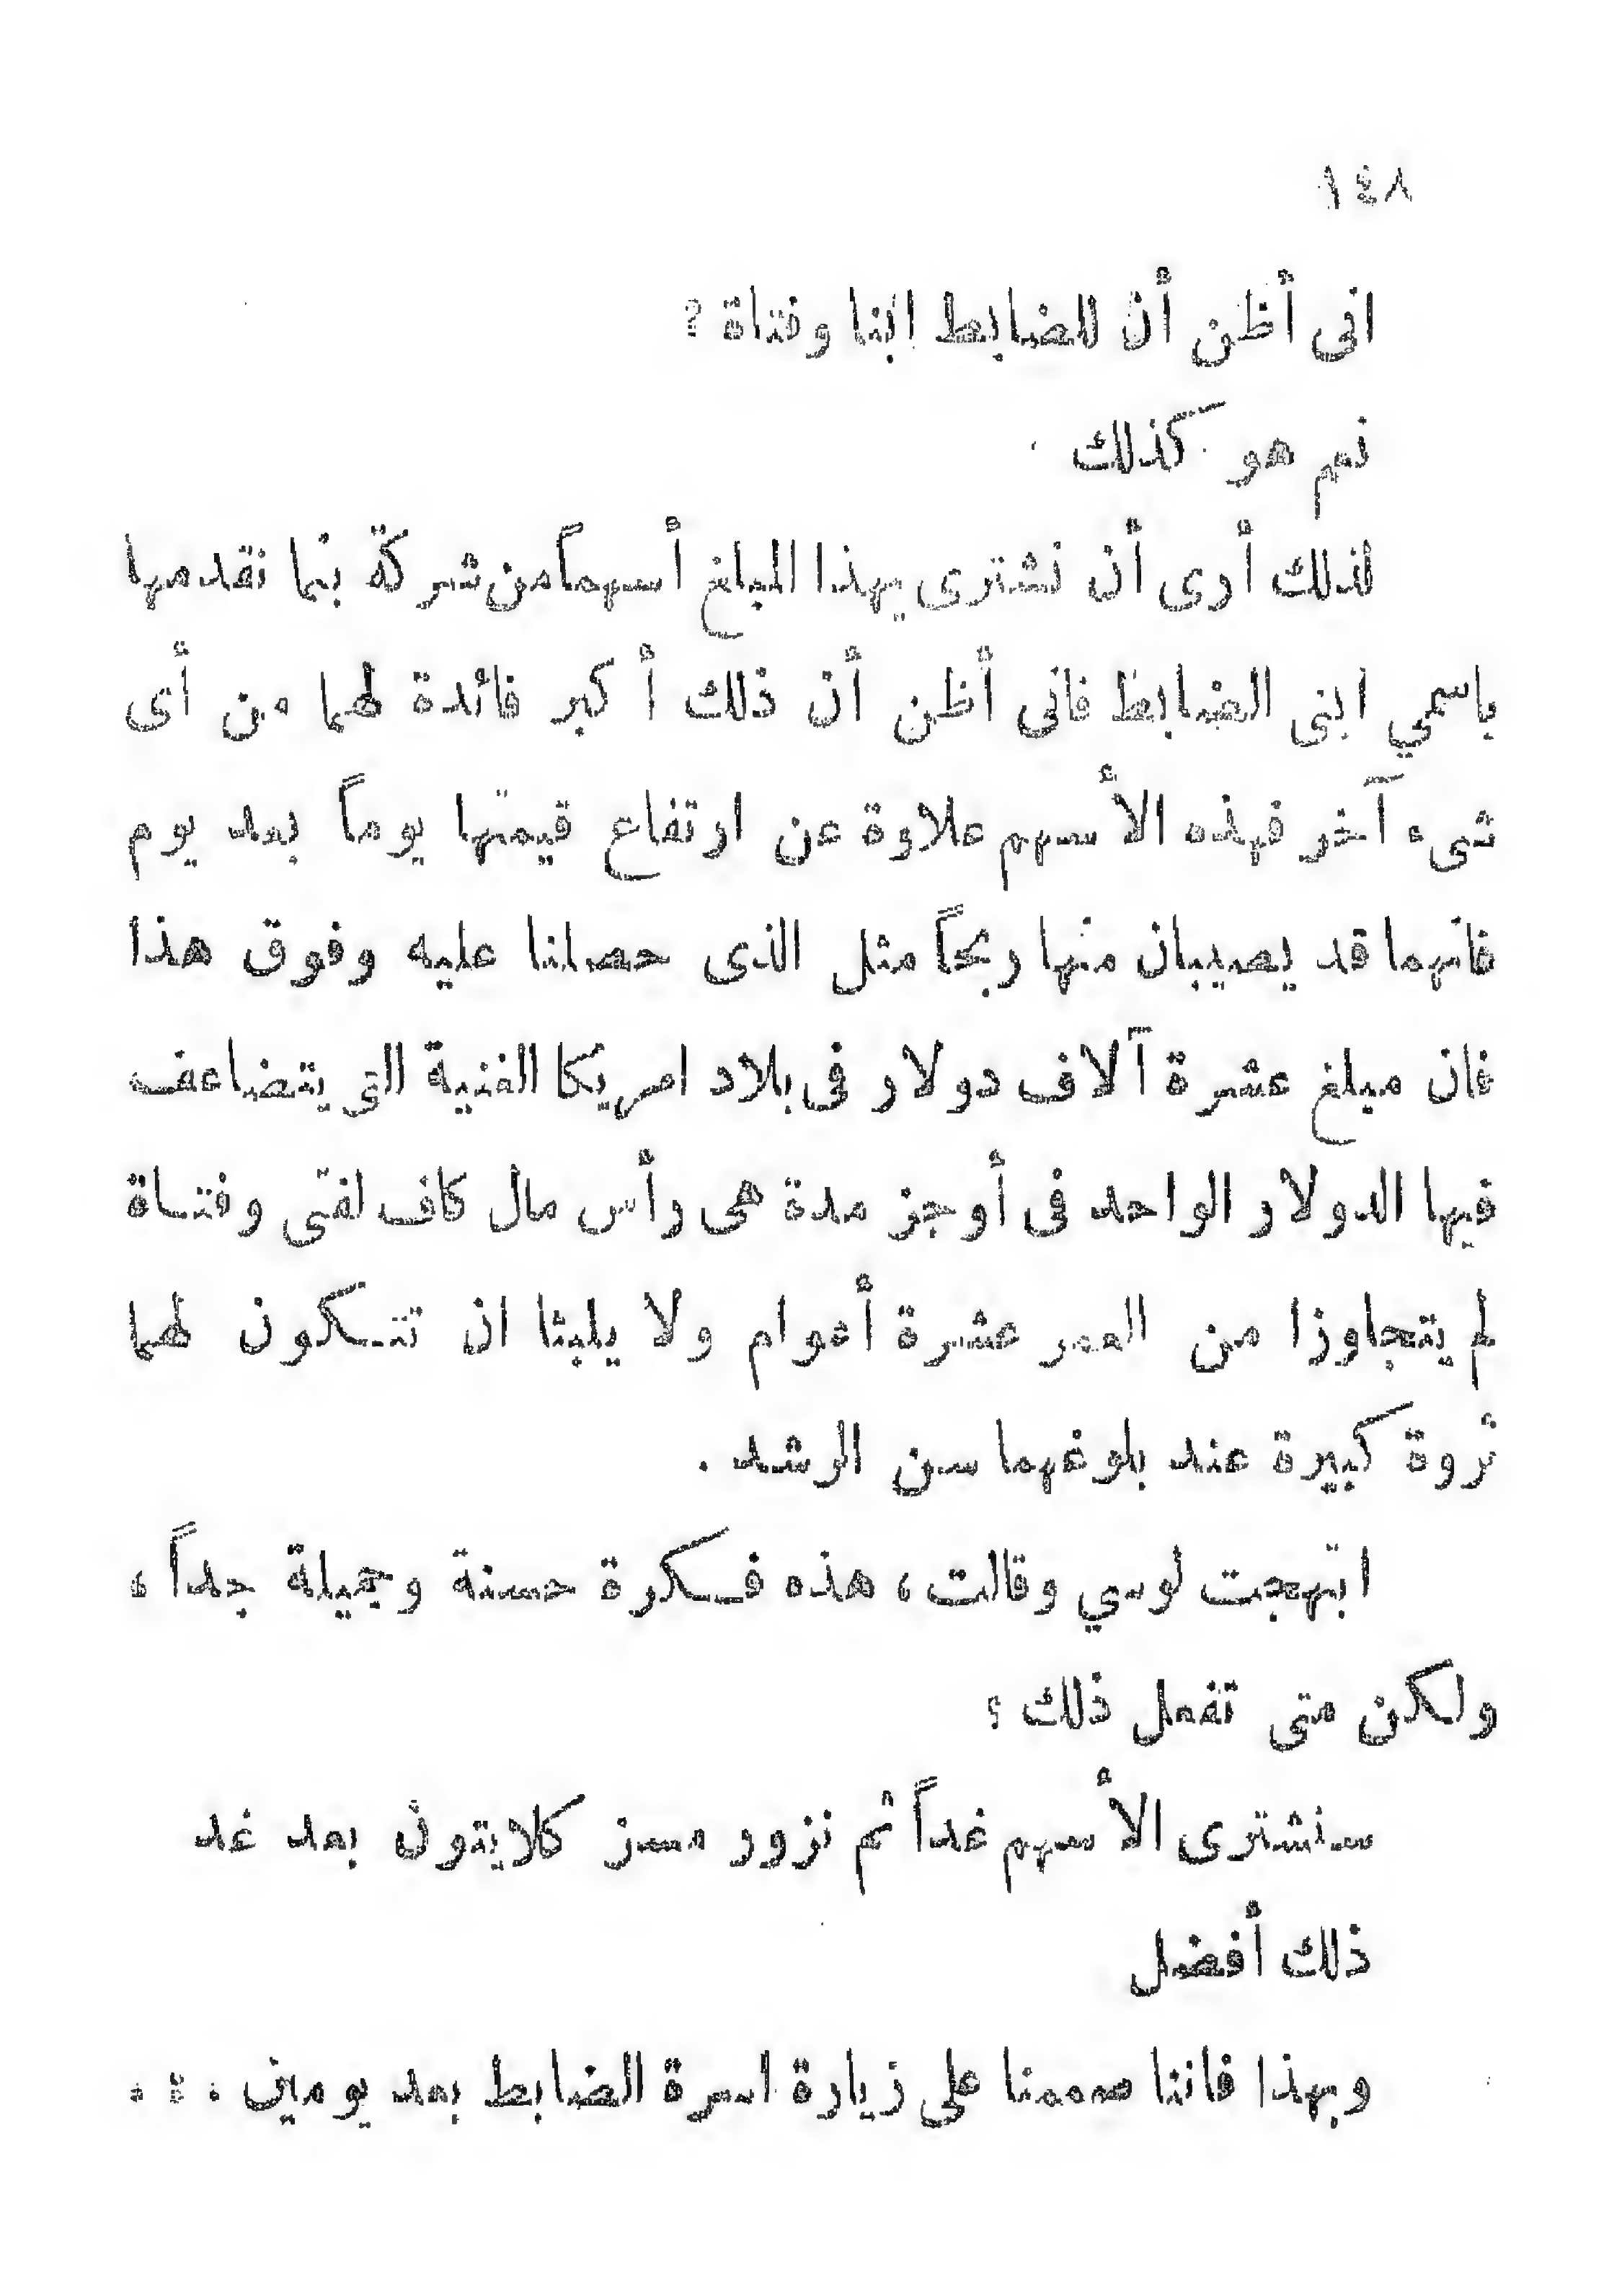 ١٤٨
انى أظن أن للضابط ابنا وفتاة ؟
نعم هو كذلك
لذلك أرى أن نشترى بهذا المبلغ أسهماً من شركة بنما نقدمها
باسمي ابنى الضابط فانى أظن أن ذلك أكبر فائدة لهما من أى
شىء آخر فهذه الأسهم علاوة عن ارتفاع قيمتها يوماً بعد يوم
فانهما قد يصيبان منها ربحاً مثل الذى حصلنا عليه وفوق هذا
فان مبلغ عشرة آلاف دولار فى بلاد امريكا الغنية التى يتضاعف
فيها الدولار الواحد فى أوجز مدة هى رأس مال كاف لفتى وفتاة
لم يتجاوزا من العمر عشرة أعوام ولا يلبثا ان تتكون لهما
ثروة كبيرة عند بلوغهما سن الرشد .
ابتهجت لوسي وقالت ، هذه فكرة حسنة وجميلة جداً ،
ولكن متى تفعل ذلك ؟
سنشترى الأسهم غداً ثم نزور مسز كلايتون بعد غد
ذلك أفضل
وبهذا فاننا صممنا على زيارة اسرة الضابط بعد يومين . . .